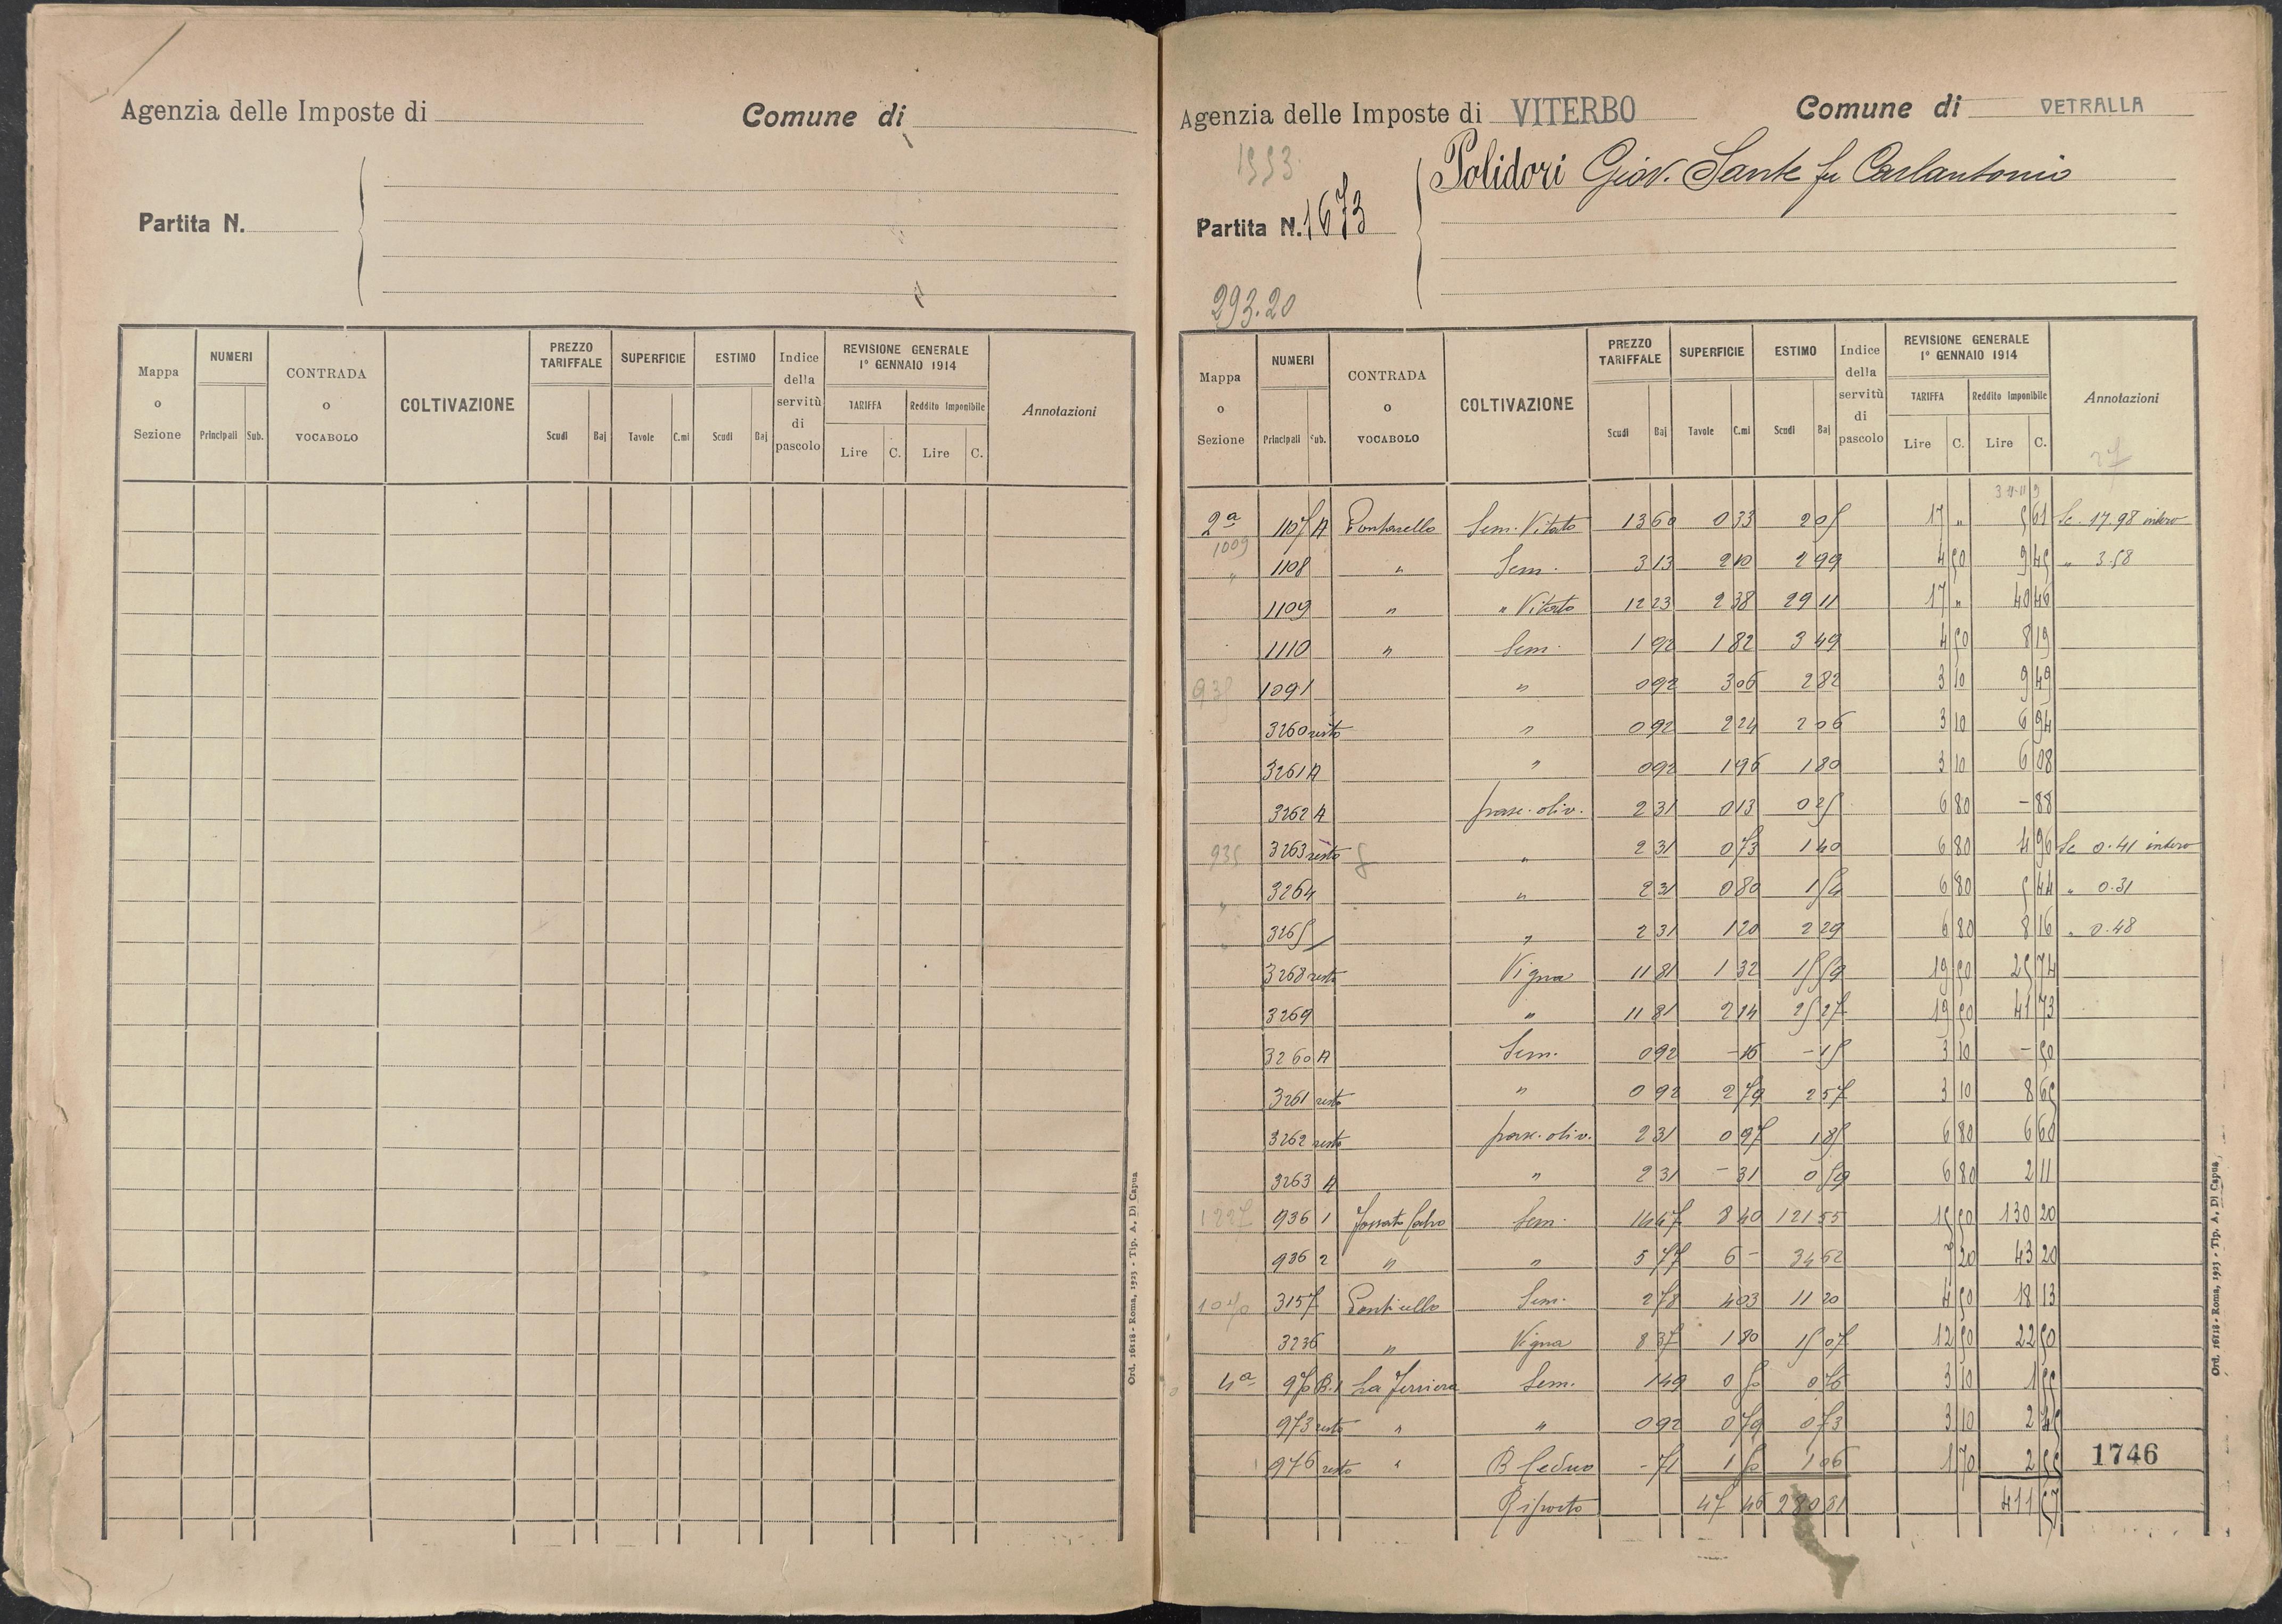 Agenzia delle Imposte di
Comune di
Partita N.
Mappa o Sezione
NUMERI
Principali Sub.
CONTRADA o VOCABOLO
COLTIVAZIONE
PREZZO TARIFFALE
Scudi Baj
SUPERFICIE
Tavole C.mi
ESTIMO
Scudi Baj
Indice della servitù di pascolo
REVISIONE GENERALE 1° GENNAIO 1914
TARIFFA Reddito Imponibile
Lire C. Lire C.
Annotazioni
Ord. 16118 - Roma, 1923 - Tip. A. Di Capua
Agenzia delle Imposte di VITERBO
Comune di VETRALLA
1553
Polidori Giov. Sante fu Carlantonio
Partita N. 1673
293.20
Mappa o Sezione
NUMERI
Principali Sub.
CONTRADA o VOCABOLO
COLTIVAZIONE
PREZZO TARIFFALE
Scudi Baj
SUPERFICIE
Tavole C.mi
ESTIMO
Scudi Baj
Indice della servitù di pascolo
REVISIONE GENERALE 1° GENNAIO 1914
TARIFFA Reddito Imponibile
Lire C. Lire C.
Annotazioni
27
2ª 1107 A Sem. Vitato 13 60 0 33 17 „ 5 61 Sc. 17.98 intero
1009
„ 1108 „ Sem. 3 13 2 10 2 99 4 50 9 45 „ 3.58
1109 „ „ Vitato 12 23 2 38 29 11 17 „ 40 46
1110 „ Sem. 1 92 1 82 3 49 4 50 8 19
938 1091 „ 0 92 3 06 2 82 3 10 9 49
3260 resto „ 0 92 2 24 2 06 3 10 6 94
3261 A „ 0 92 1 96 1 80 3 10 6 08
3262 A pasc. oliv. 2 31 0 13 0 25 6 80 - 88
935 3263 resto „ 2 31 0 73 1 40 6 80 4 96 Sc 0.41 intero
„ 3264 „ 2 31 0 80 1 54 6 80 5 44 „ 0.31
„ 3265 „ 2 31 1 20 2 29 6 80 8 16 „ 0.48
3268 resto Vigna 11 81 1 32 15 59 19 50 25 74
3269 „ 11 81 2 14 25 27 19 50 41 73
3260 A Sem. 0 92 - 16 - 15 3 10 - 50
3261 resto „ 0 92 2 79 2 57 3 10 8 65
3262 resto pasc. oliv. 2 31 0 97 1 85 6 80 6 60
3263 A „ 2 31 - 31 0 59 6 80 2 11
1227 936 1 Sem. 14 47 8 40 121 55 15 50 130 20
936 2 „ „ 5 77 6 - 34 62 7 20 43 20
3157 Ponticello Sem. 2 78 4 03 11 20 4 50 18 13
3236 „ Vigna 8 37 1 80 15 07 12 50 22 50
4ª B.1 Sem. 1 49 3 10 1 55
973 resto „ „ 0 92 0 79 0 73 3 10 2 45
976 resto „ B. Ceduo - 71 1 50 1 06 1 70 2 55
1746
Riporto 47 46 280 81 411 57
Ord. 16118 - Roma, 1923 - Tip. A. Di Capua